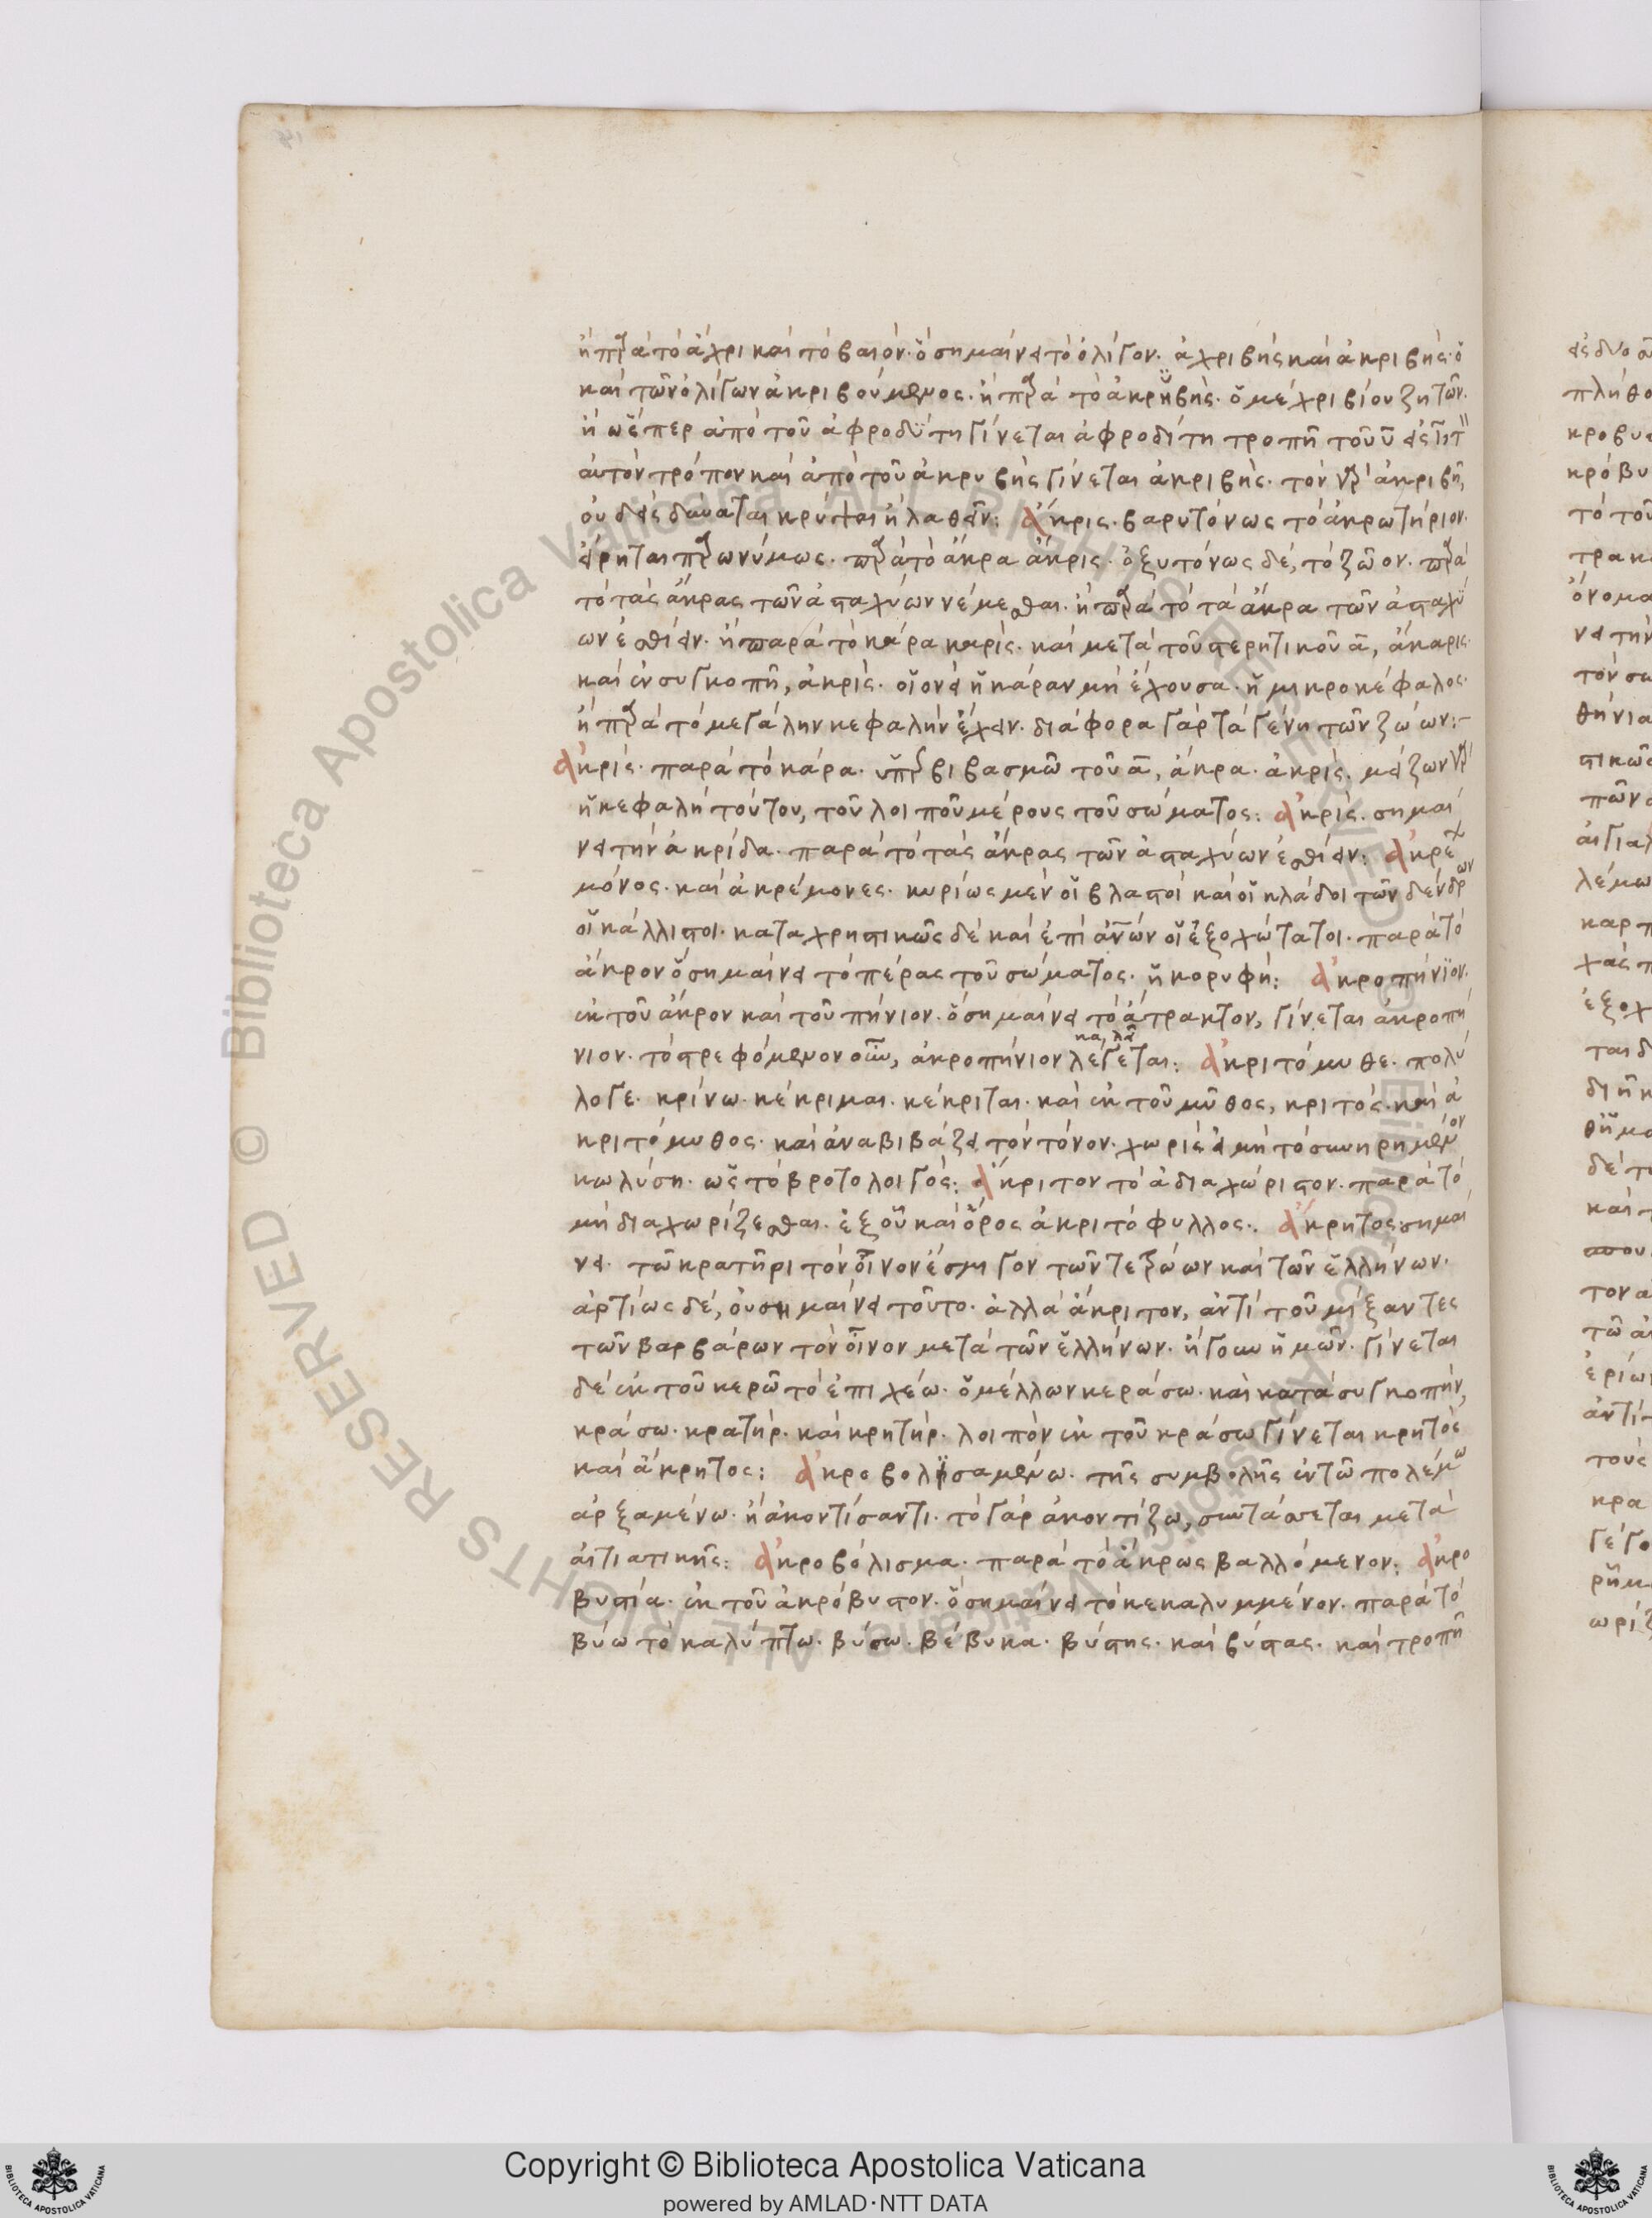 ἢ παρὰ τὸ ἄχρι καὶ τὸ βαιὸν· ὃ σημαίνει τὸ ὀλίγον· ἀχριβὴς καὶ ἀκριβὴς· ὁ
καὶ τῶν ὀλίγων ἀκριβούμενος· ἢ παρὰ τὸ ἀκρηβὴς· ὁ μέχρι βίου ζητῶν·
ἢ ὥσπερ ἀπὸ τοῦ ἀφροδύτη γίνεται ἀφροδίτη τροπῆ τοῦ υ εἰς ι τ
αὐτὸν τρόπον καὶ ἀπὸ τοῦ ἀκρυβὴς γίνεται ἀκριβὴς· τὸν γὰρ ἀκριβῆ,
οὐδεὶς δύναται κρύψαι ἢ λαθεῖν: ἄκρις· βαρυτόνως τὸ ἀκρωτήριον·
εἴρηται παρωνύμως· παρὰ τὸ ἄκρα ἄκρις· ὀξυτόνως δέ, τὸ ζῶον· παρὰ
τὸ τὰς ἄκρας τῶν ἀσταχύων νέμεσθαι· ἢ παρὰ τὸ τὰ ἄκρα τῶν ἀσταχύ
ων ἐσθίειν· ἢ παρὰ τὸ κάρα καρὶς· καὶ μετὰ τοῦ στερητικοῦ α, ἄκαρις·
καὶ ἐν συγκοπῆ, ἀκρὶς· οἷον εἰ ἡ κάραν μὴ ἔχουσα· ἡ μικροκέφαλος·
ἢ παρὰ τὸ μεγάλην κεφαλὴν ἔχειν· διάφορα γὰρ τὰ γένη τῶν ζώων:-
ἀκρίς· παρὰ τὸ κάρα· ὑπερβιβασμῶ τοῦ α, ἄκρα· ἀκρὶς· μείζων γὰρ
ἡ κεφαλὴ τούτου, τοῦ λοιποῦ μέρους τοῦ σώματος: ἀκρὶς· σημαί
νει τὴν ἀκρίδα· παρὰ τὸ τὰς ἄκρας τῶν ἀσταχύων ἐσθίειν: ἀκρε
μόνος· καὶ ἀκρέμονες· κυρίως μὲν οἱ βλαστοὶ καὶ οἱ κλάδοι τῶν δένδρων
οἱ κάλλιστοι· καταχρηστικῶς δὲ καὶ ἐπὶ ἀνων οἱ ἐξοχώτατοι· παρὰ τὸ
ἄκρον ὃ σημαίνει τὸ πέρας τοῦ σώματος· ἡ κορυφή: ἀκροπήνϊον·
ἐκ τοῦ ἄκρον καὶ τοῦ πήνιον· ὃ σημαίνει τὸ ἄτρακτον, γίνεται ἀκροπή
νιον· τὸ στρεφόμενον οὖν, ἀκροπήνιον λέγεται: ἀκριτόμυθε· πολύ
λογε· κρίνω· κέκριμαι· κέκριται· καὶ ἐκ τοῦ μῦθος, κριτός· καὶ ἀ
κριτόμυθος· καὶ ἀναβιβάζει τὸν τόνον· χωρὶς εἰ μὴ τὸ συνηρημένον
κωλύση· ὡς τὸ βροτολοιγός: ἄκριτον τὸ ἀδιαχώριστον· παρὰ τὸ
μὴ διαχωρίζεσθαι· ἐξ οὗ καὶ ὄρος ἀκριτόφυλλος:. ἄκρητος σημαί
νει· τῶ κρατῆρι τὸν οἶνον ἔσμιγον τῶν τε τρώων καὶ τῶν ἑλλήνων·
ἀρτίως δέ, οὐ σημαίνει τοῦτο· ἀλλὰ ἄκριτον, ἀντὶ τοῦ μίξαντες
τῶν βαρβάρων τὸν οἶνον μετὰ τῶν ἑλλήνων· ἤγουν ἡμῶν· γίνεται
δὲ ἐκ τοῦ κερῶ τὸ ἐπιχέω· ὁ μέλλων κεράσω· καὶ κατὰ συγκοπήν,
κράσω· κρατήρ· καὶ κρητήρ· λοιπὸν ἐκ τοῦ κράσω γίνεται κρητὸς
καὶ ἄκρητος: ἀκροβολησαμένω· τῆς συμβολῆς ἐν τῶ πολέμω
ἀρξαμένω· ἢ ἀκοντίσαντι· τὸ γὰρ ἀκοντίζω, συντάσσεται μετὰ
αἰτιατικῆς: ἀκροβόλισμα· παρὰ τὸ ἄκρως βαλλόμενον: ἀκρο
βυστία· ἐκ τοῦ ἀκρόβυστον· ὃ σημαίνει τὸ κεκαλυμμένον· παρὰ τὸ
βύω τὸ καλύπτω· βύσω· βέβυκα· βύστης· καὶ βύστας· καὶ τροπῆ
Copyright © Biblioteca Apostolica Vaticana
powered by AMLAD·NTT DATA